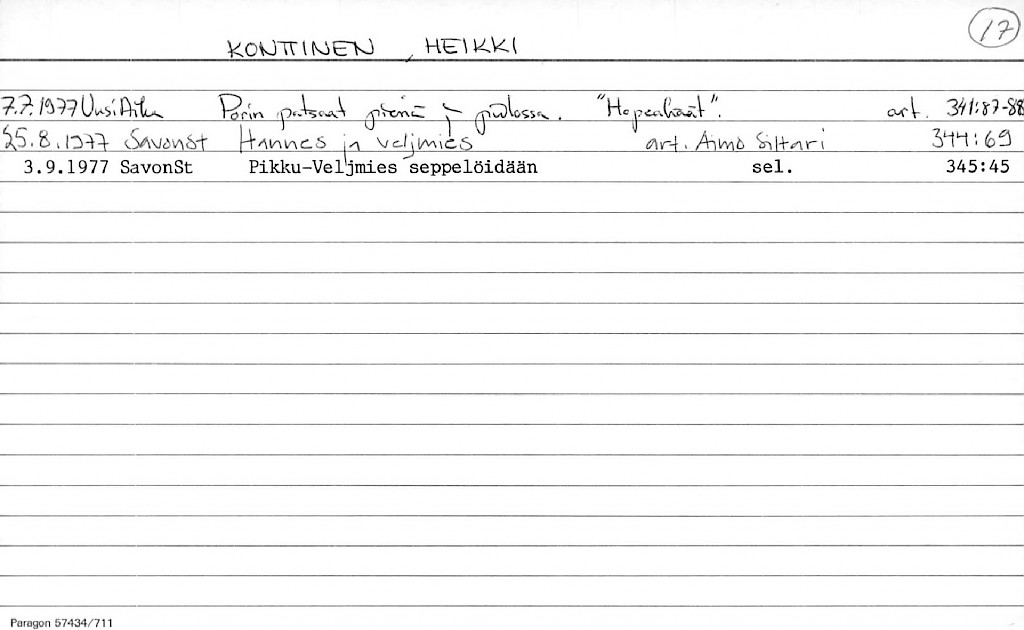 17
KONTTINEN, HEIKKI
7.7.1977 Uusi Aika Porin patsaat pieniä ja piilossa. "Hopeahäät". art. 341:87-88
25.8.1977 SavonSt Hannes ja Veljmies art. Aimo Siltari 344:69
3.9.1977 SavonSt Pikku-Veljmies seppelöidään sel. 345:45
Paragon 57434/711